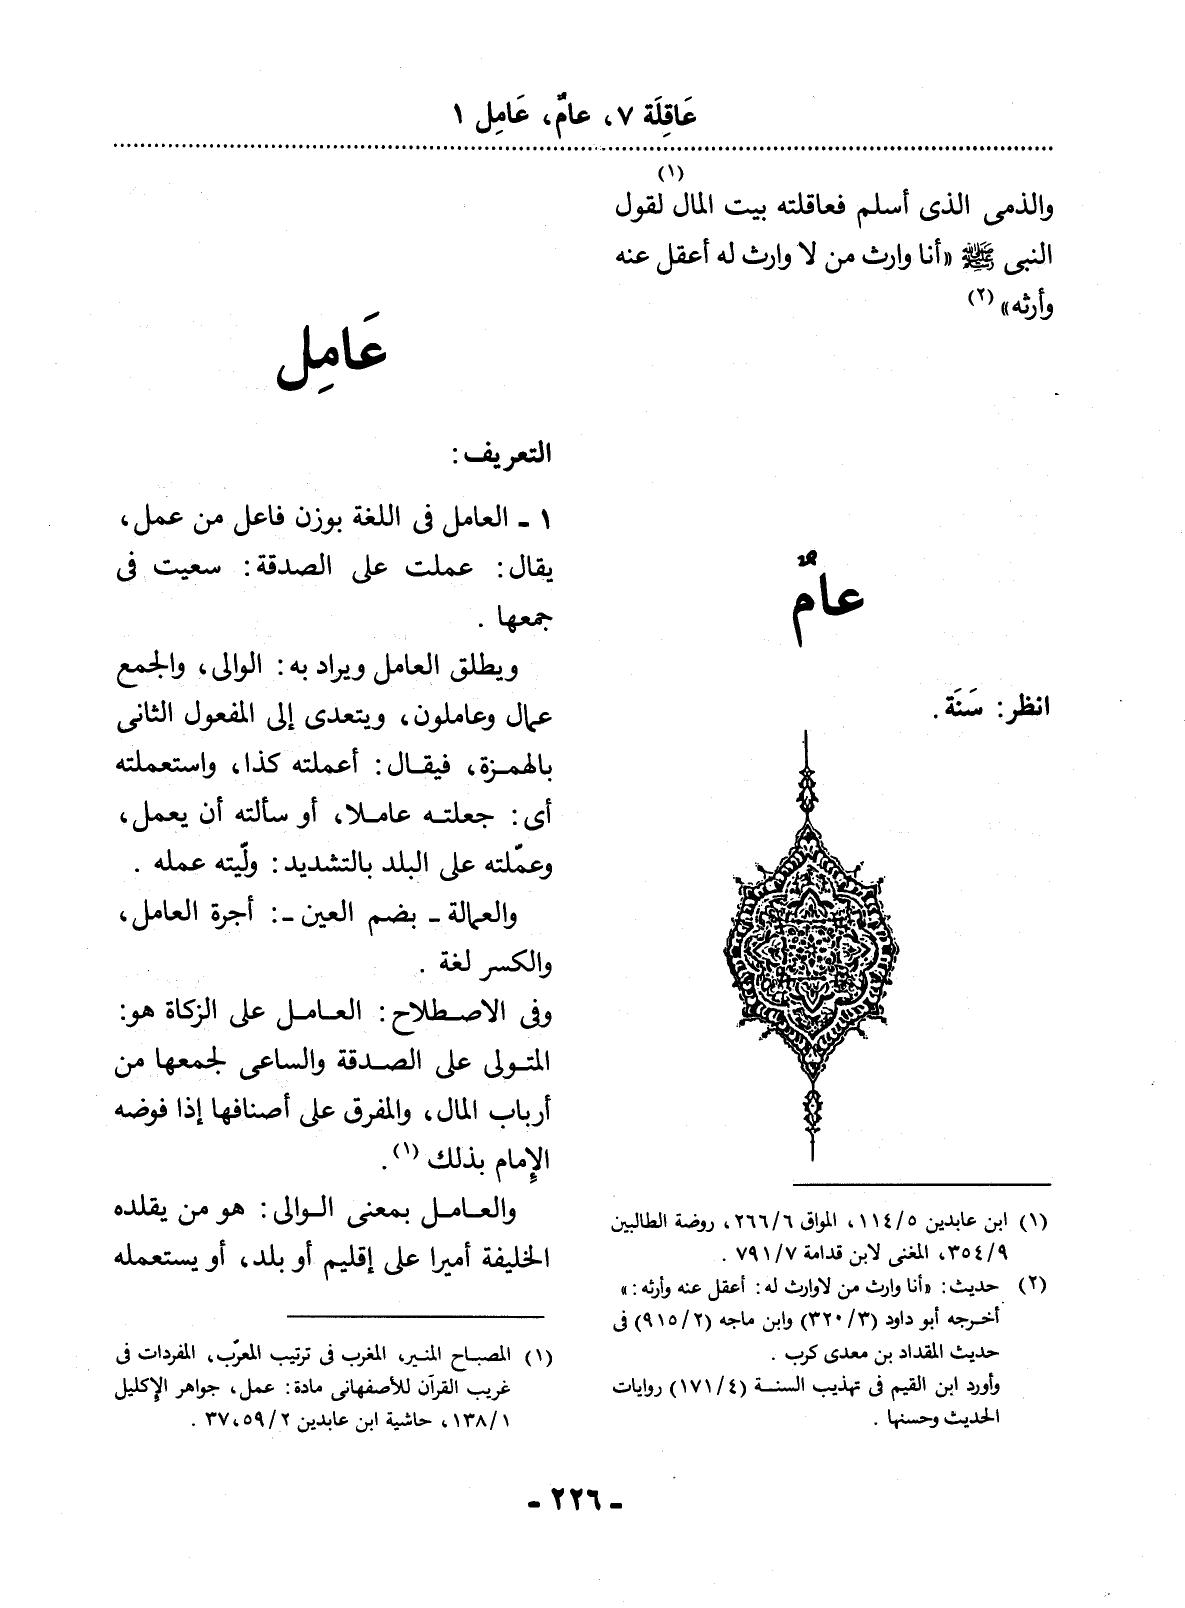 عَاقِلَة ٧، عامٌ، عَامِل ١
(١)
والذمى الذى أسلم فعاقلته بيت المال لقول
النبى ﷺ «أنا وارث من لا وارث له أعقل عنه
وأرثه» (٢)
عامٌ
انظر: سَنَة .
(١) ابن عابدين ٥/١١٤، المواق ٦/٢٦٦، روضة الطالبين
٩/٣٥٤، المغنى لابن قدامة ٧/٧٩١ .
(٢) حديث: «أنا وارث من لاوارث له: أعقل عنه وأرثه: »
أخرجه أبو داود (٣/٣٢٠) وابن ماجه (٢/٩١٥) فى
حديث المقداد بن معدى كرب .
وأورد ابن القيم فى تهذيب السنة (٤/١٧١) روايات
الحديث وحسنها .
عَامِل
التعريف:
١ ـ العامل فى اللغة بوزن فاعل من عمل،
يقال: عملت على الصدقة: سعيت فى
جمعها .
ويطلق العامل ويراد به: الوالى، والجمع
عمال وعاملون، ويتعدى إلى المفعول الثانى
بالهمزة، فيقال: أعملته كذا، واستعملته
أى: جعلته عاملا، أو سألته أن يعمل،
وعمّلته على البلد بالتشديد: ولّيته عمله .
والعمالة ـ بضم العين ـ: أجرة العامل،
والكسر لغة .
وفى الاصطلاح: العامل على الزكاة هو:
المتولى على الصدقة والساعى لجمعها من
أرباب المال، والمفرق على أصنافها إذا فوضه
الإمام بذلك (١).
والعامل بمعنى الوالى: هو من يقلده
الخليفة أميرا على إقليم أو بلد، أو يستعمله
(١) المصباح المنير، المغرب فى ترتيب المعرّب، المفردات فى
غريب القرآن للأصفهانى مادة: عمل، جواهر الإكليل
١/١٣٨، حاشية ابن عابدين ٢/٣٧،٥٩ .
ـ ٢٢٦ ـ